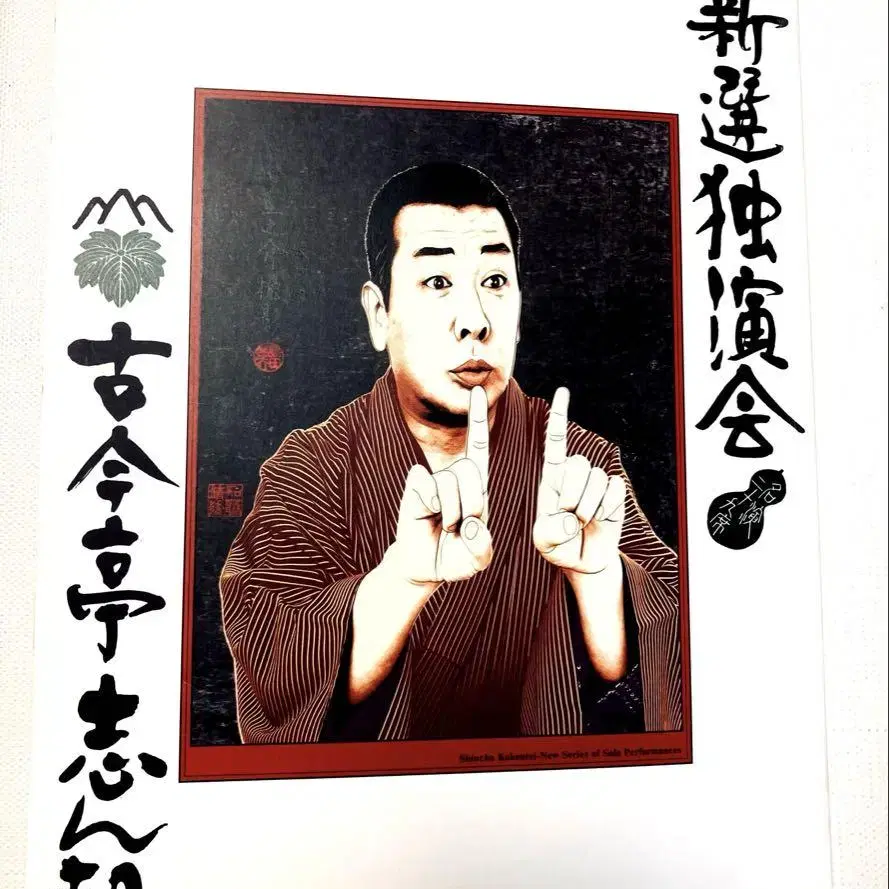 新選独演会
古今亭志ん朝
Shincho Kokontei-New Series of Solo Performances